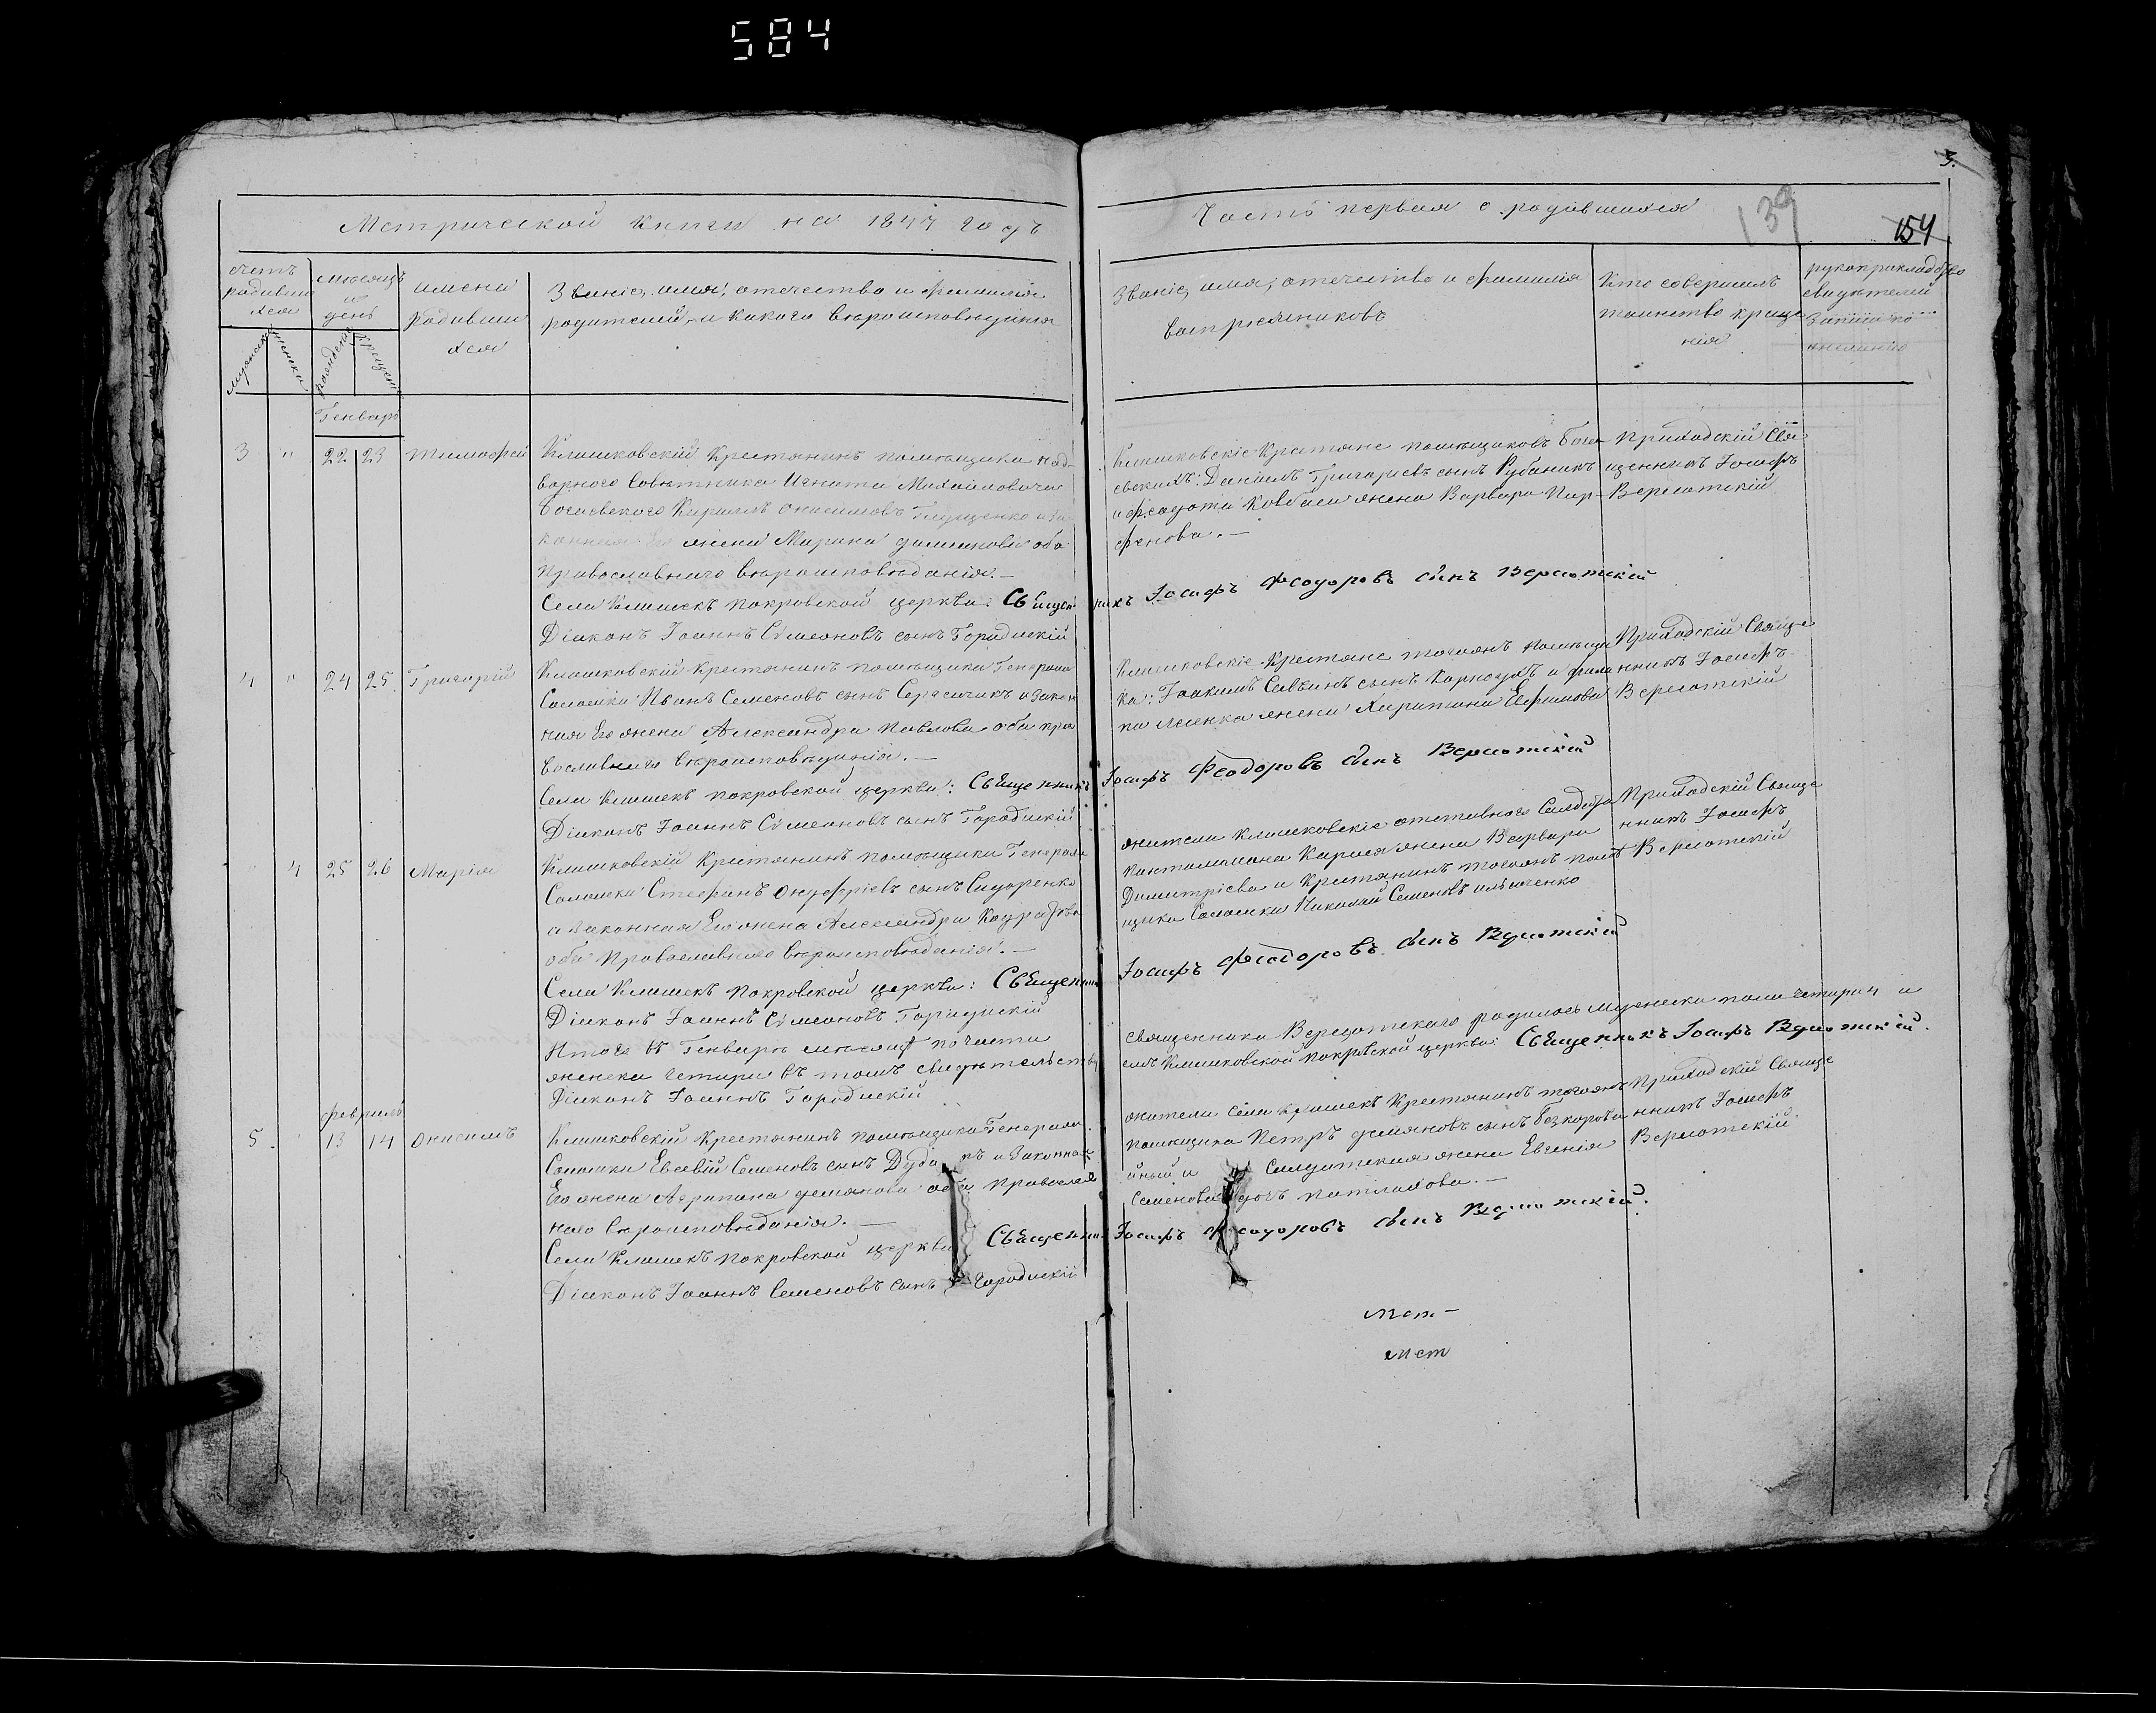 584
3.
Метрической книги на 1847 годъ
Часть первая о родившихся
139
154
счетъ родивших хся
мѣсяцъ и день
имена родивши хся
Званіе, имя, отечество и фамилія
родителей, и какого вѣроисповѣданія
Званіе, имя, отечество и фамилія
воспріемниковъ
Кто совершалъ
таинство креще
нія
рукоприкладство
свидѣтелей
мужеска
женска
рожденія
крещен
Генварь
3 " 22 23 Тимофей
Клишковскій Крестянинъ помѣщика над-
ворного Совѣтника Игната Михайловича
Богаевского Кирилъ Онисимовъ Глущенко и за
конная Его жена Марина оба
православнаго вѣроисповѣданія.—
Села Клишекъ покровской церкви: Священникъ Іосифъ Феодоровъ сынъ Версотскій
Діаконъ Іоаннъ Симеоновъ сынъ Городискій
Клишковскіе Крестяне помѣщиковъ Бога-
евскихъ: Даніилъ Григоріевъ сынъ Рубаникъ
и Федота Ковбаси жена Варвара Пар-
фенова.—
Приходскій Свя-
щенникъ Іосифъ
Версотскій
4 " 24 25 Григорій
Клишковскій крестянинъ помѣщика Генерала
Саломки Иванъ Семеновъ сынъ Герасимчикъ и закон
ная Его жена Александра Павлова оба пра
вославнаго вѣроисповѣданія.—
Села Клишекъ покровской церкви: Священникъ Іосифъ Феодоровъ сынъ Версотскій
Діаконъ Іоаннъ Симеоновъ сынъ Городискій
Клишковскіе Крестяне тогожъ помѣщи
ка: Іоакимъ Савинъ сынъ Карнаухъ и Фили
па жена Харитина Евфимова
Приходскій Свяще
нникъ Іосифъ
Версотскій
" 4 25 26 Марія
Клишковскій Крестянинъ помѣщика Генерала
Саломки Стефанъ Онуфріевъ сынъ Сидоренко
а законная Его жена Александра
оба православнаго вѣроисповѣданія.—
Села Клишекъ покровской церкви: Священникъ Іосифъ Феодоровъ сынъ Версотскій
Діаконъ Іоаннъ Симеоновъ Городискій
жители Клишковскіе отставного Салдата
Пантилимона жена Варвара
Димитріева и Крестянинъ тогожъ помѣ
щика Саломки Николай Семеновъ
Приходскій Свяще
нникъ Іосифъ
Версотскій
Итого въ Генварѣ мѣсяцѣ по части священника Версотскаго родилось мужеска пола четыри 4 и
женска четыри въ томъ свидѣтельству емъ Клишковской покровской церкви: Священникъ Іосифъ Версотскій.
Діаконъ Іоаннъ Городискій
февраль
5 " 13 14 Онисимъ
Клишковскій крестянинъ помѣщика Генерала
Саломки Евсевій Семеновъ сынъ и законная
Его жена Агрипина демянова оба православ
наго вѣроисповѣданія.—
Села Клишекъ покровской церкви Священникъ Іосифъ Феодоровъ сынъ Версотскій.
Діаконъ Іоаннъ Семеновъ сынъ Городискій
жители села Клишекъ Крестянинъ тогожъ
помѣщика Петръ демяновъ сынъ Безкорова
йный и Салдатская жена Евгенія
Семенова дочь
Приходскій Свяще
нникъ Іосифъ
Версотскій